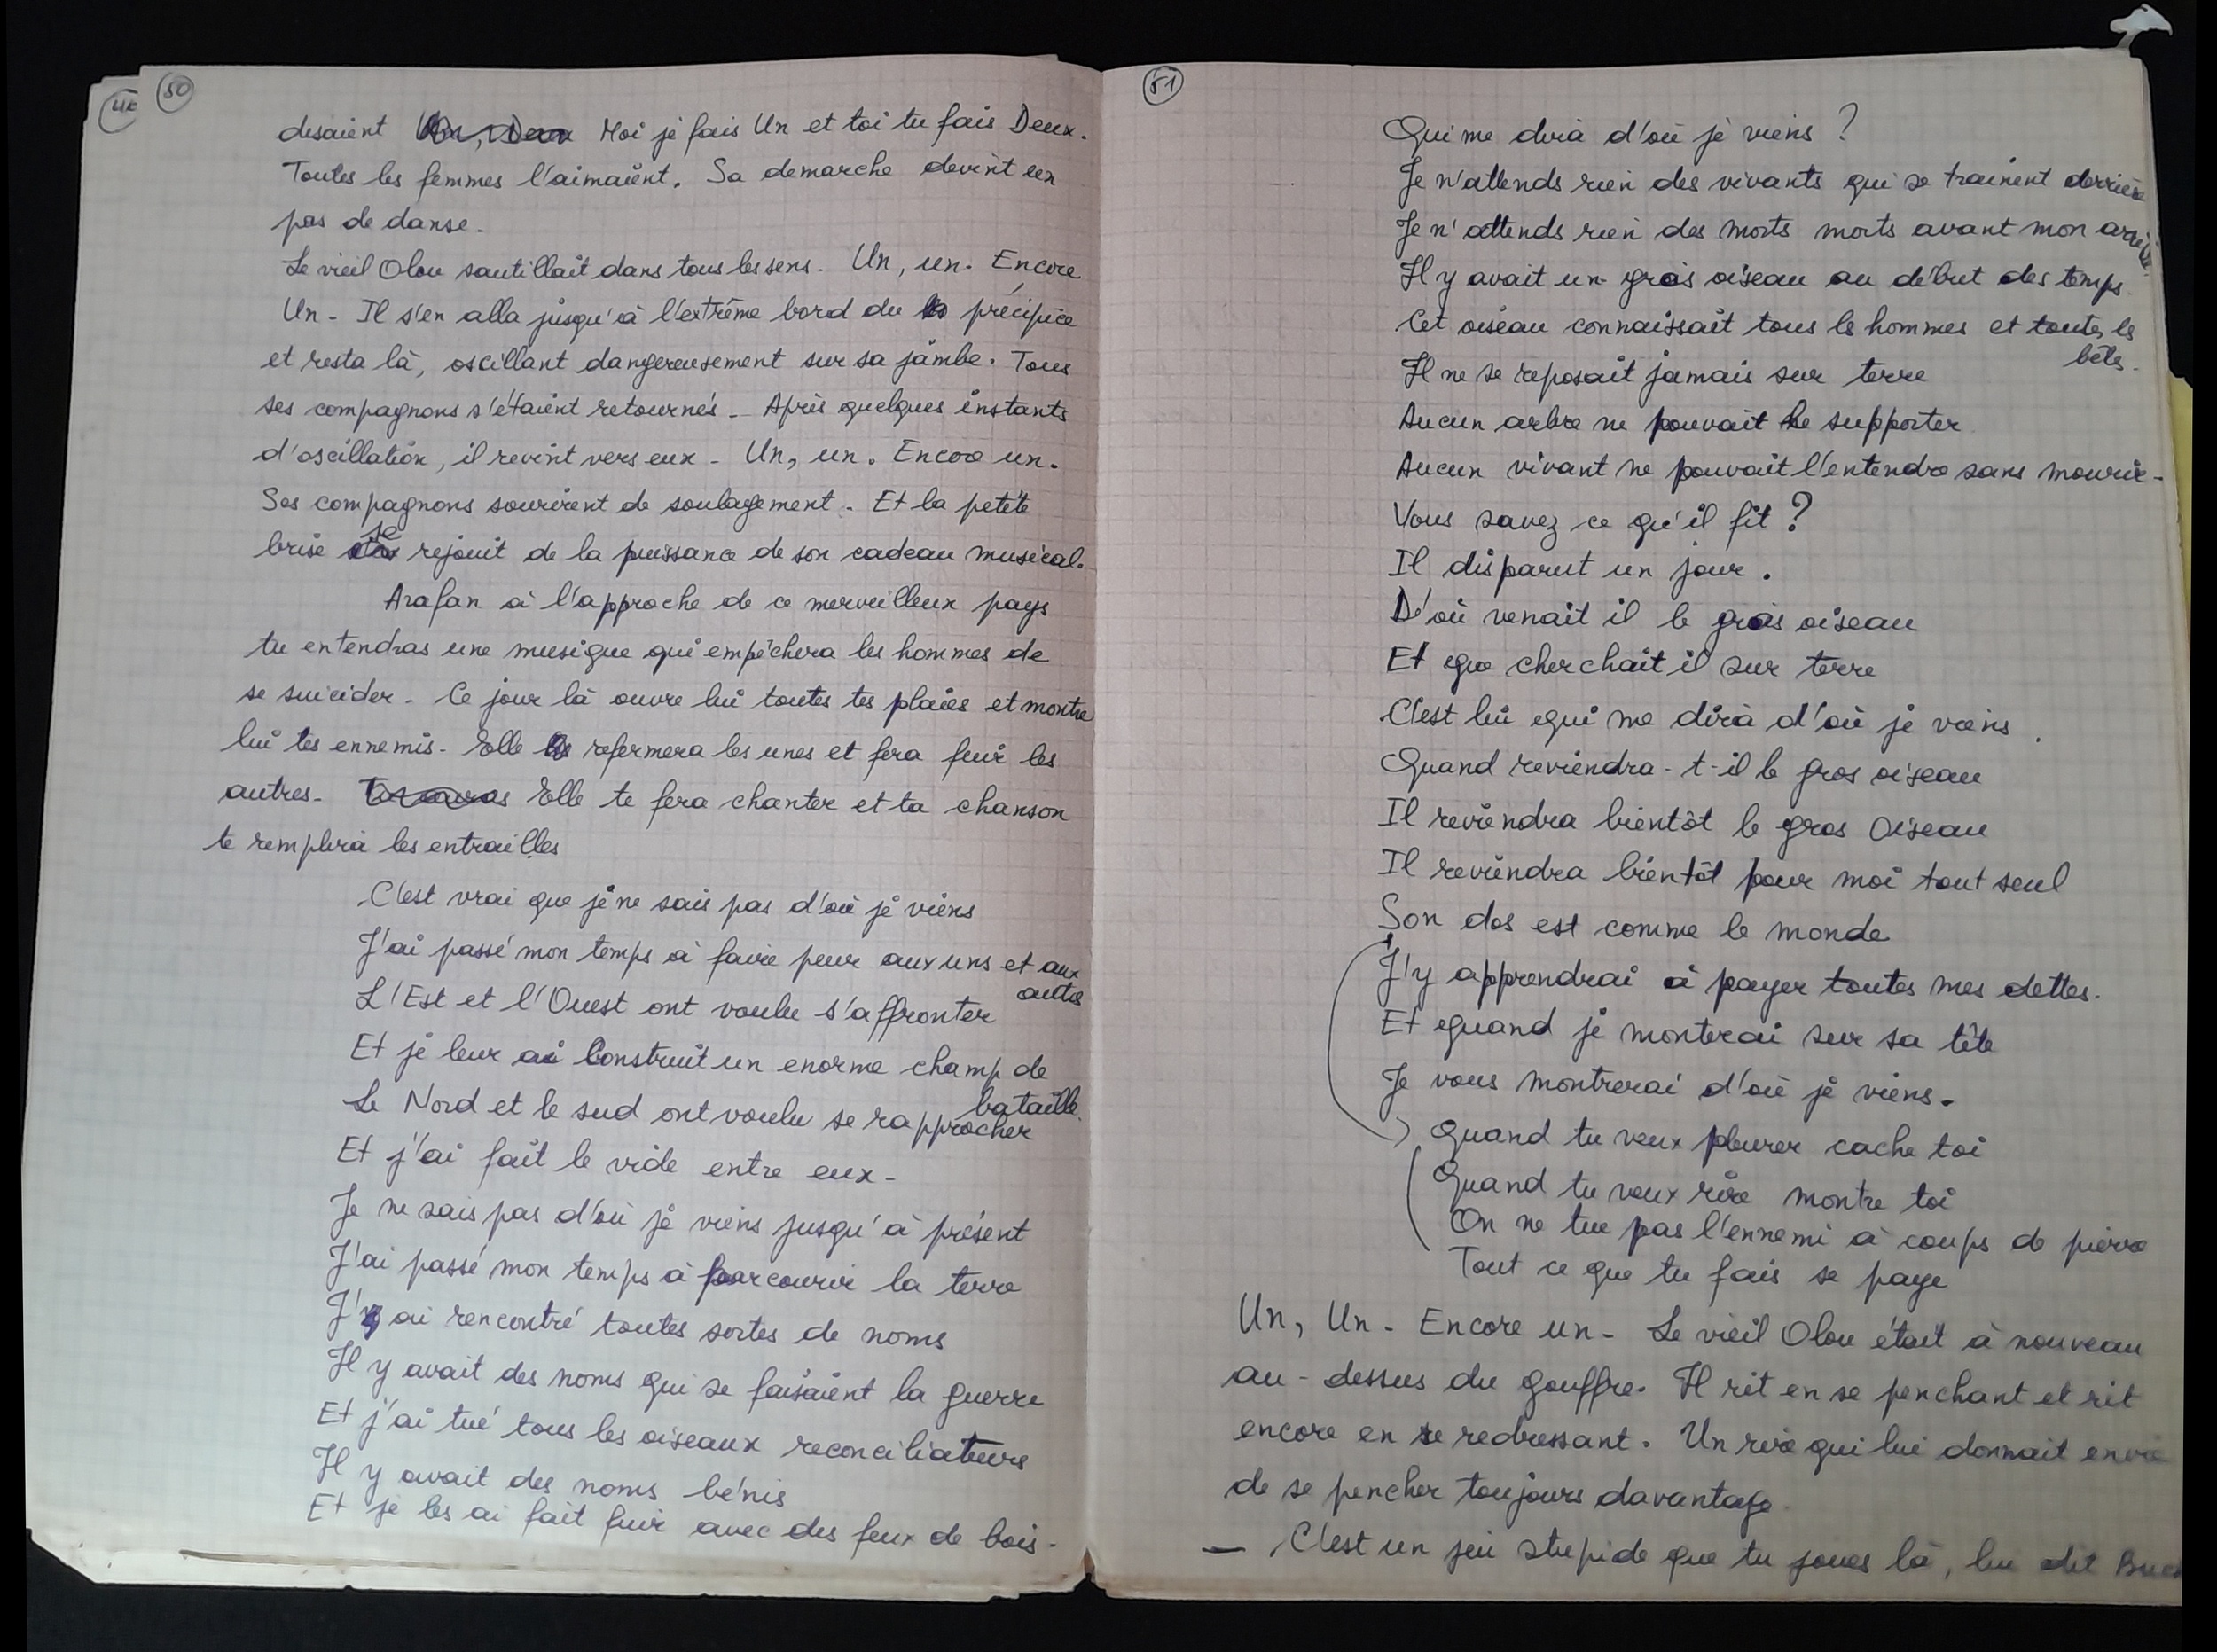 50
disaient Moi je fais Un et toi tu fais Deux.
Toutes les femmes l'aimaient. Sa demarche devint un
pas de danse.
Le vieil Olou sautillait dans tous les sens. Un, un. Encore
Un. Il s'en alla jusqu'à l'extrême bord du précipice
et resta là, oscillant dangereusement sur sa jambe. Tous
ses compagnons s'étaient retournés. Après quelques instants
d'oscillation, il revint vers eux. Un, un. Encore un.
Ses compagnons sourirent de soulagement. Et la petite
brise se rejouit de la puissance de son cadeau musical.
Arafan à l'approche de ce merveilleux pays
tu entendras une musique qui empêchera les hommes de
se suicider. Ce jour là ouvre lui toutes tes plaies et montre
lui tes ennemis. Elle refermera les unes et fera fuir les
autres. Elle te fera chanter et ta chanson
te remplira les entrailles
C'est vrai que je ne sais pas d'où je viens
J'ai passé mon temps à faire peur aux uns et aux
autres
L'Est et l'Ouest ont voulu s'affronter
Et je leur ai construit un enorme champ de
bataille.
Le Nord et le sud ont voulu se rapprocher
Et j'ai fait le vide entre eux.
Je ne sais pas d'où je viens jusqu'à présent
J'ai passé mon temps à parcourir la terre
J'y ai rencontré toutes sortes de noms
Il y avait des noms qui se faisaient la guerre
Et j'ai tué tous les oiseaux reconciliateurs
Il y avait des noms bénis
Et je les ai fait fuir avec des feux de bois.
51
Qui me dira d'où je viens ?
Je n'attends rien des vivants qui se trainent derrière
Je n'attends rien des morts morts avant mon
Il y avait un gros oiseau au début des temps
Cet oiseau connaissait tous les hommes et toutes les
bêtes.
Il ne se reposait jamais sur terre
Aucun arbre ne pouvait le supporter.
Aucun vivant ne pouvait l'entendre sans mourir.
Vous savez ce qu'il fit ?
Il disparut un jour.
D'où venait il le gros oiseau
Et que cherchait il sur terre
C'est lui qui me dira d'où je viens.
Quand reviendra-t-il le gros oiseau
Il reviendra bientôt le gros Oiseau
Il reviendra bientôt pour moi tout seul
Son dos est comme le monde
J'y apprendrai à payer toutes mes dettes.
Et quand je monterai sur sa tête
Je vous montrerai d'où je viens.
Quand tu veux pleurer cache toi
Quand tu veux rire montre toi
On ne tue pas l'ennemi à coups de pierre
Tout ce que tu fais se paye
Un, Un. Encore un. Le vieil Olou était à nouveau
au-dessus du gouffre. Il rit en se penchant et rit
encore en se redressant. Un rire qui lui donnait envie
de se pencher toujours davantage.
— C'est un jeu stupide que tu joues là, lui dit